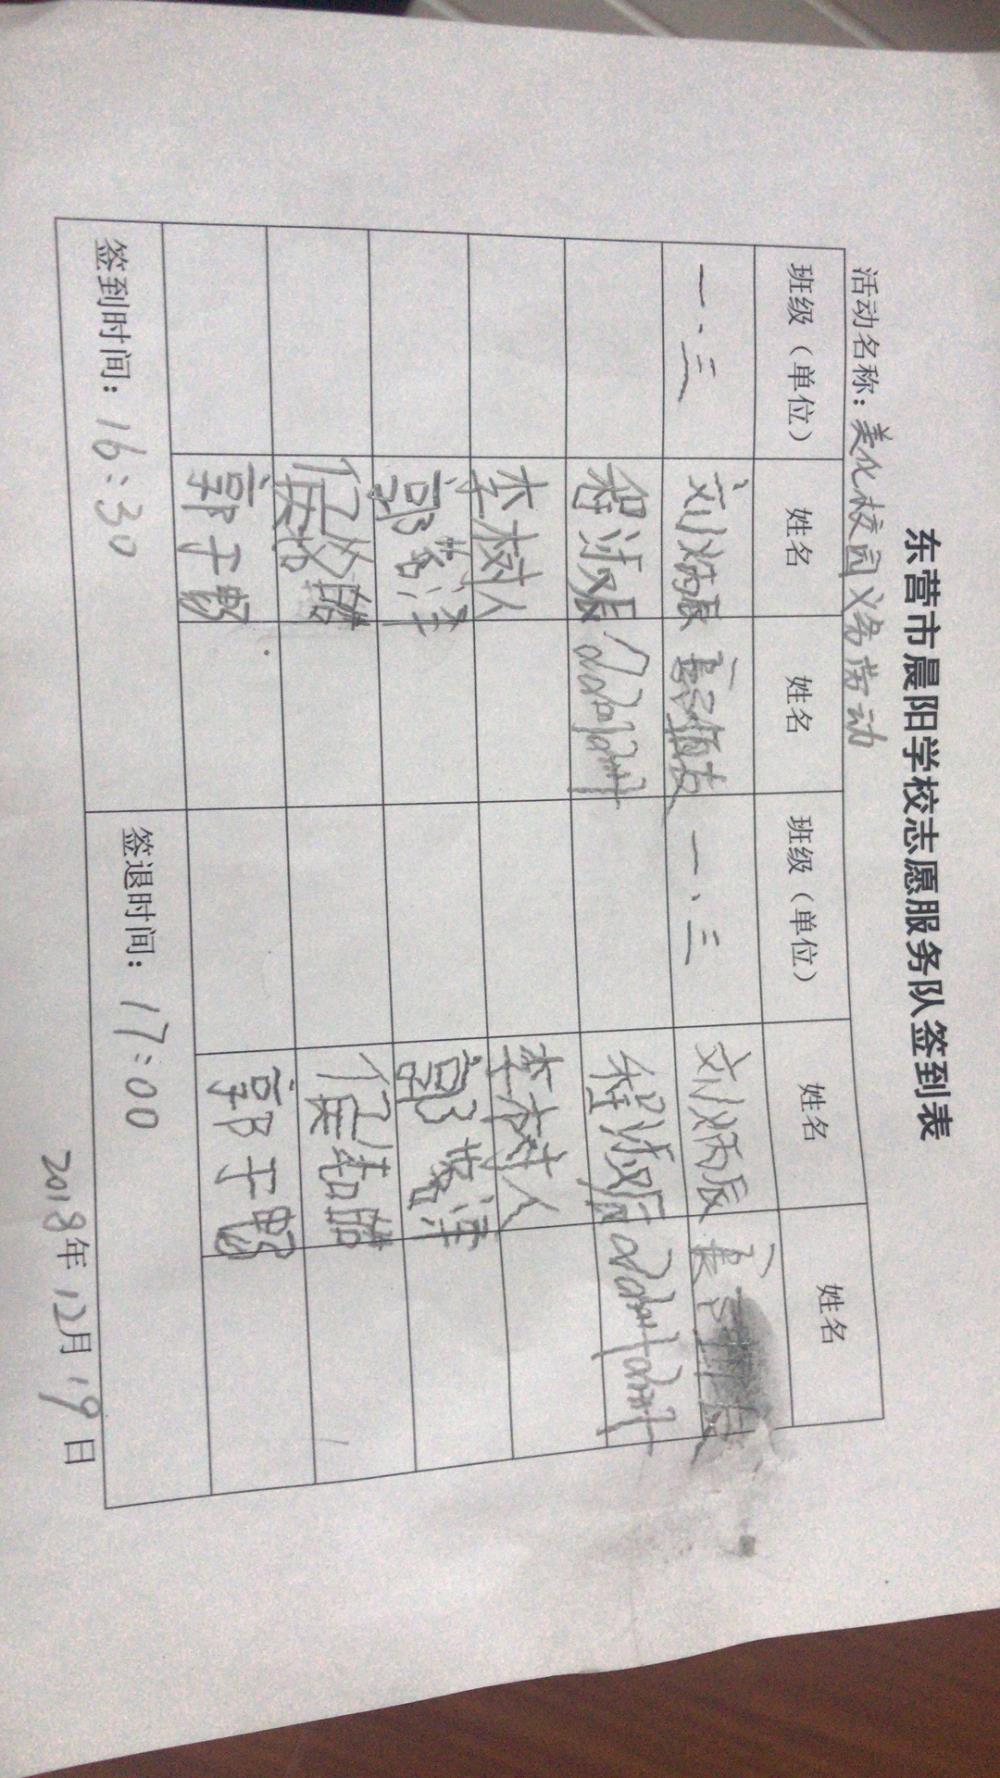 东营市晨阳学校志愿服务队签到表
活动名称：美化校园义务劳动
班级（单位） 姓名 姓名 班级（单位） 姓名 姓名
一.三 刘炳辰 一、三 刘炳辰
程 程
李树人 李树人
郭 郭
侯皓 侯皓
郭于畅 郭于畅
签到时间：16:30 签退时间：17:00
2018年12月19日